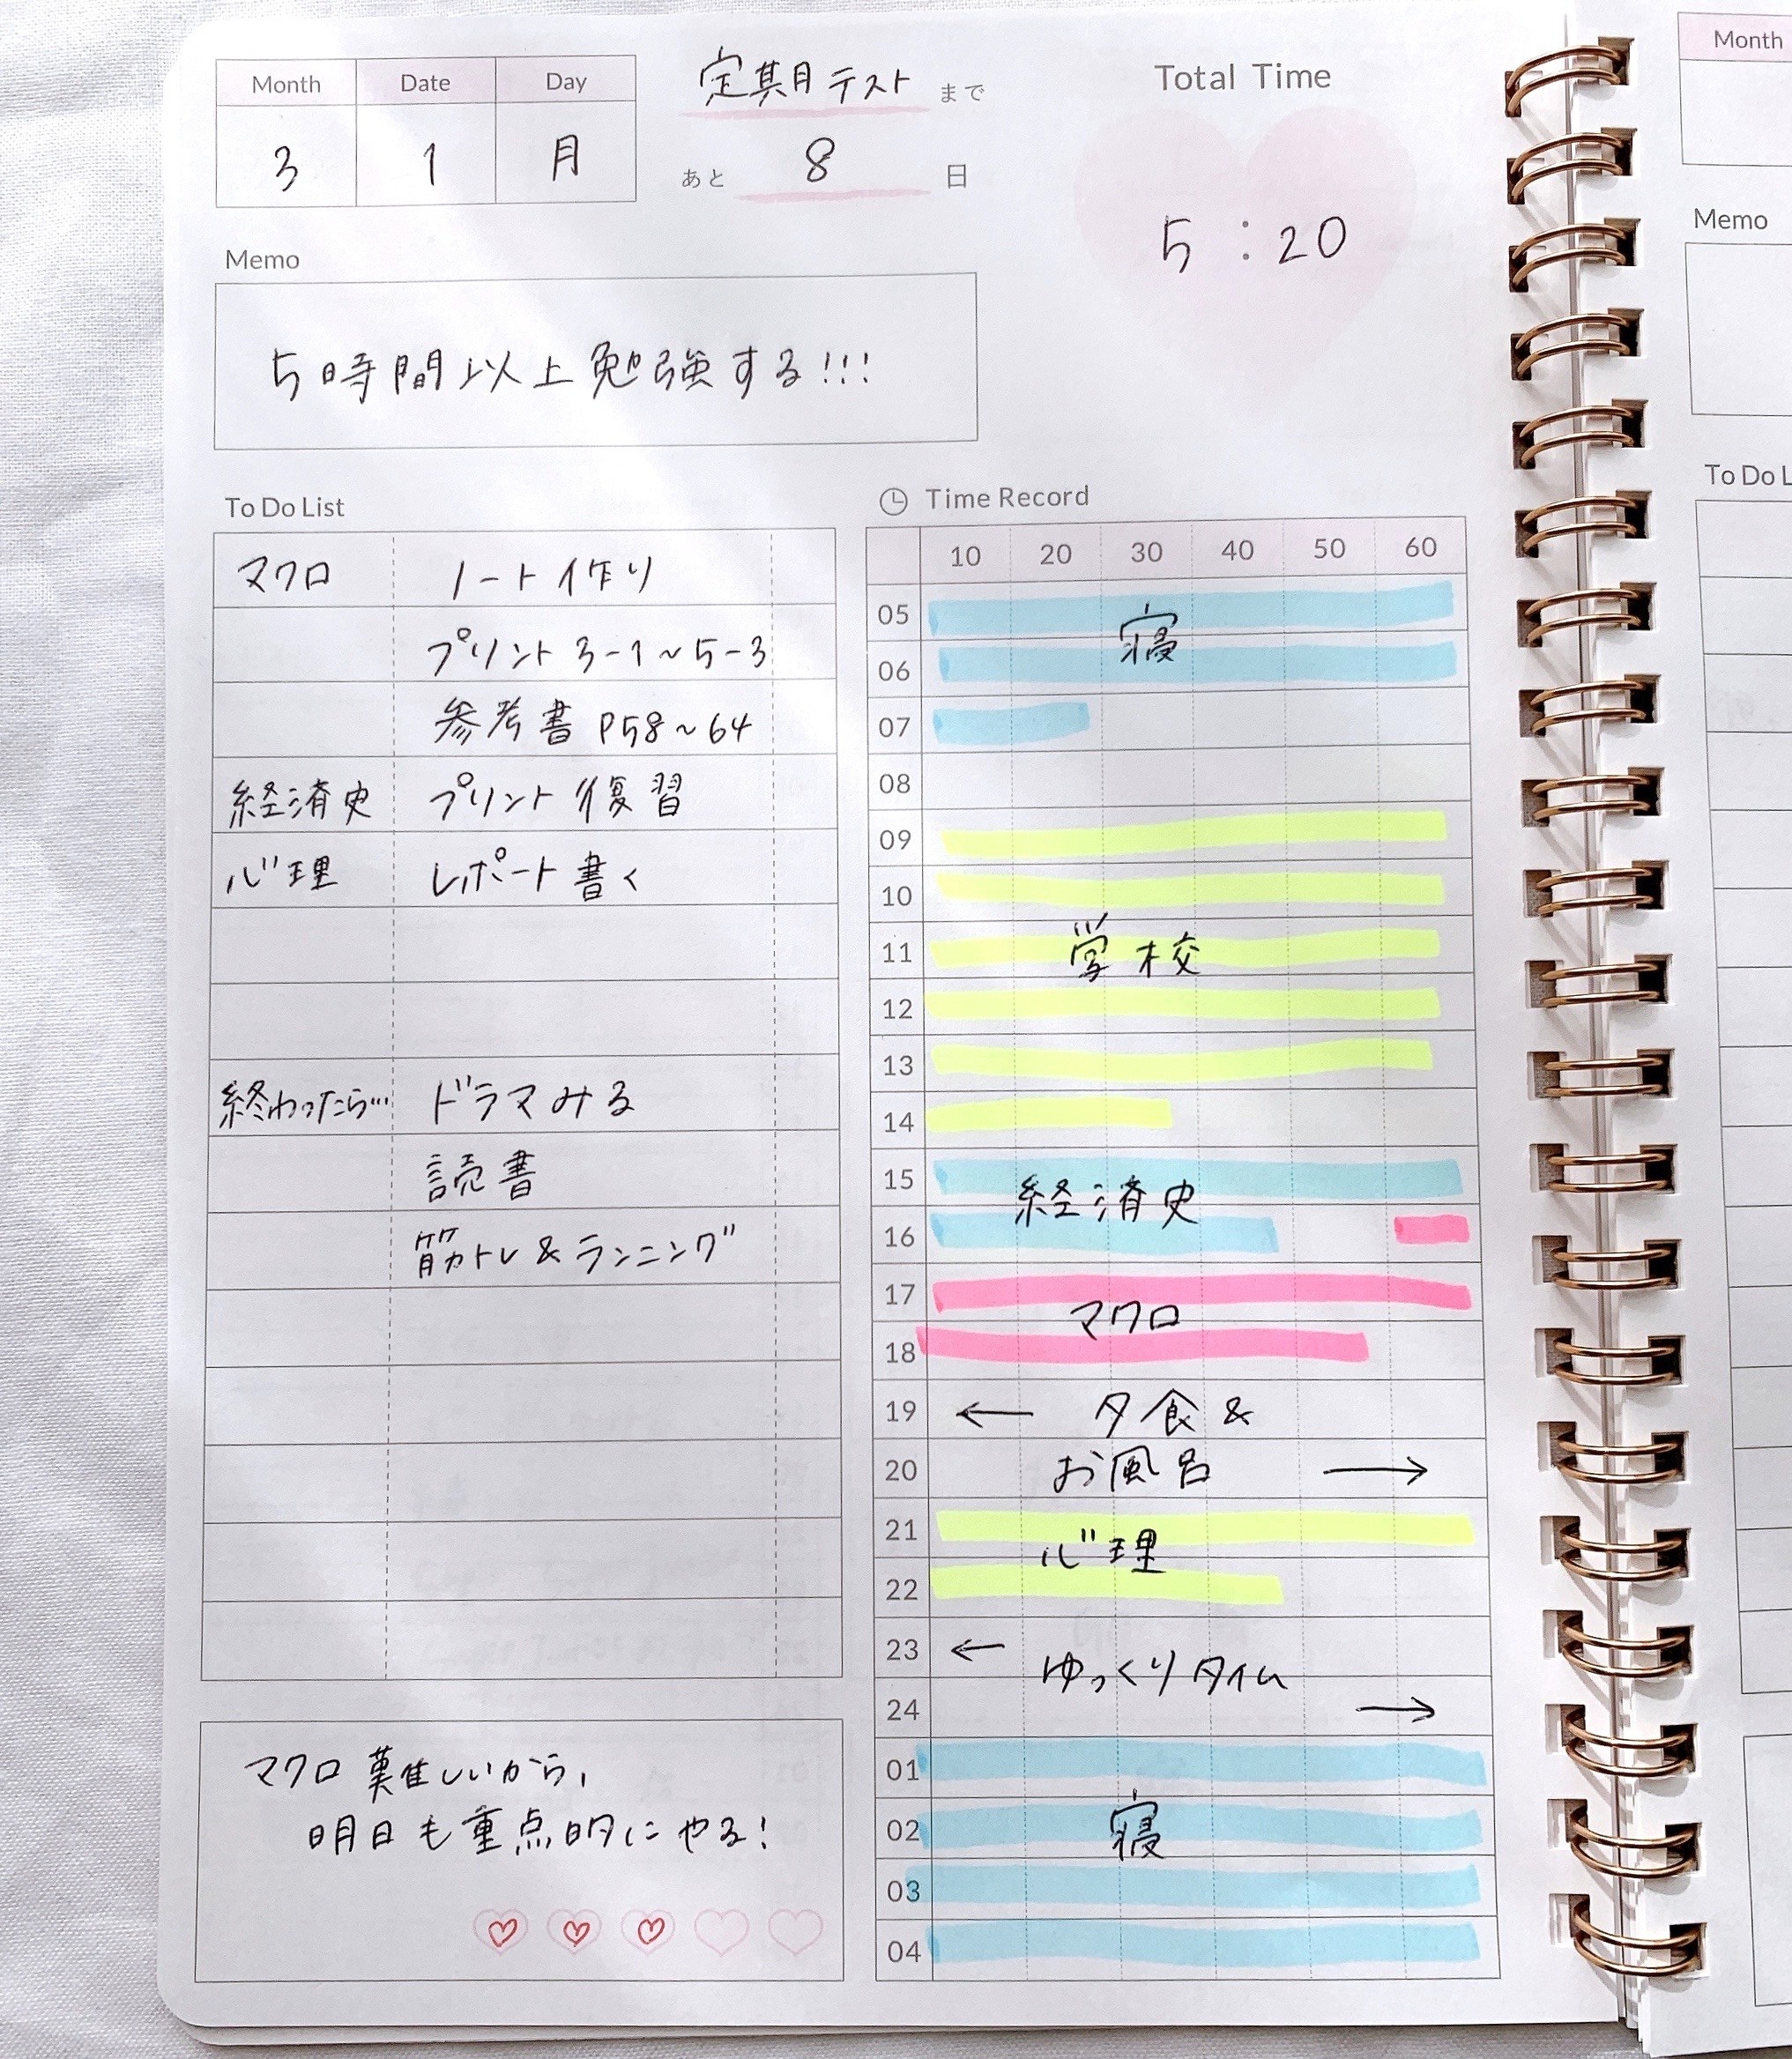 Month Date Day
3 1 月
定期テスト まで
あと 8 日
Total Time
5 : 20
Memo
5時間以上勉強する!!!
To Do List
マクロ ノート作り
プリント 3-1～5-3
参考書 P58～64
経済史 プリント復習
心理 レポート書く
終わったら… ドラマみる
読書
筋トレ & ランニング
マクロ難しいから,
明日も重点的にやる!
Time Record
10 20 30 40 50 60
05
寝
06
07
08
09
10
11 学校
12
13
14
15
経済史
16
17
マクロ
18
19 ← 夕食 &
20 お風呂 →
21
心理
22
23 ←
ゆっくりタイム
24 →
01
02 寝
03
04
Month
Memo
To Do L